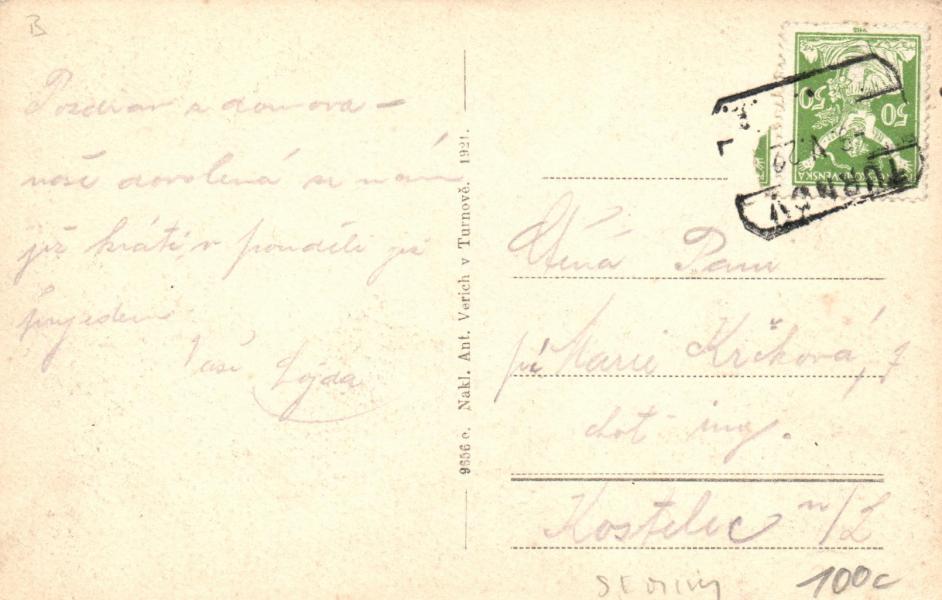 B
Pozdrav z domova –
naše dovolená se nám
již krátí, v pondělí již
přijedem.
Vaši Lojda
9656 c. Nakl. Ant. Verich v Turnově. 1921.
50 50
ČESKOSLOVENSKÁ
TURNOV
Ctěná Paní
pí Marie Krčková,
choť ing.
Kostelec n/L
100c